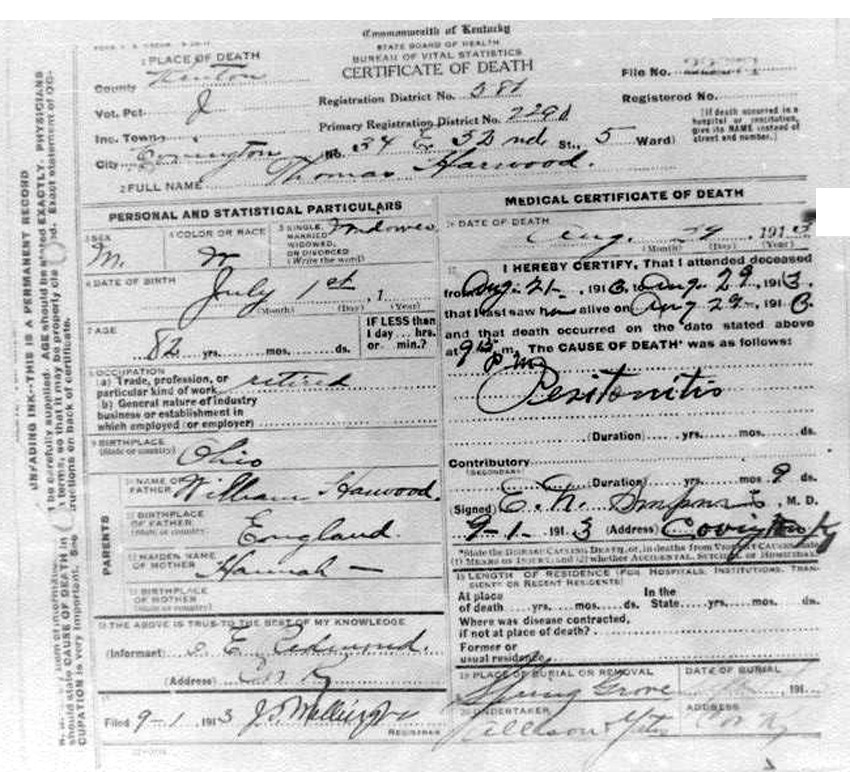 Commonwealth of Kentucky
STATE BOARD OF HEALTH
BUREAU OF VITAL STATISTICS
CERTIFICATE OF DEATH
1 PLACE OF DEATH
County Kenton
Vot. Pct.
Inc. Town
City Covington
Registration District No. 581
Primary Registration District No. 2290
File No.
Registered No.
No. 34 E 32nd St., 5 Ward)
(If death occurred in a hospital or institution, give its NAME instead of street and number.)
2 FULL NAME Thomas Harwood.
PERSONAL AND STATISTICAL PARTICULARS
3 SEX M.
4 COLOR OR RACE W
5 SINGLE, MARRIED WIDOWED, OR DIVORCED (Write the word) Widower
6 DATE OF BIRTH July 1st, 1
(Month) (Day) (Year)
7 AGE 82 yrs. mos. ds.
IF LESS than 1 day... hrs. or... min.?
8 OCCUPATION
(a) Trade, profession, or particular kind of work retired
(b) General nature of industry business or establishment in which employed (or employer)
9 BIRTHPLACE
(State or country) Ohio
PARENTS
10 NAME OF FATHER William Harwood.
11 BIRTHPLACE OF FATHER
(State or country) England.
12 MAIDEN NAME OF MOTHER Hannah —
13 BIRTHPLACE OF MOTHER
(State or country)
14 THE ABOVE IS TRUE TO THE BEST OF MY KNOWLEDGE
(Informant) E
(Address)
Filed 9-1 1913
REGISTRAR
MEDICAL CERTIFICATE OF DEATH
DATE OF DEATH
Aug. 29, 1913
(Month) (Day) (Year)
17 I HEREBY CERTIFY, That I attended deceased
from Aug. 21, 1913, to Aug. 29, 1913,
that I last saw h alive on Aug 29, 1913
and that death occurred on the date stated above
at 9 15 m. The CAUSE OF DEATH* was as follows:
P.M.
Peritonitis
(Duration) yrs. mos. ds.
Contributory
(SECONDARY)
(Duration) yrs. mos. 9 ds.
(Signed) E. N. M.D.
9-1-1913 (Address) Covington Ky
*State the DISEASE CAUSING DEATH, or, in deaths from VIOLENT CAUSES state
(1) MEANS OF INJURY; and (2) whether ACCIDENTAL, SUICIDAL or HOMICIDAL
18 LENGTH OF RESIDENCE (FOR HOSPITALS, INSTITUTIONS, TRANSIENTS OR RECENT RESIDENTS)
At place of death yrs. mos. ds. In the State yrs. mos. ds.
Where was disease contracted, if not at place of death?
Former or usual residence
19 PLACE OF BURIAL OR REMOVAL
Spring Grove
DATE OF BURIAL
191
20 UNDERTAKER
ADDRESS
Cov Ky
UNFADING INK—THIS IS A PERMANENT RECORD